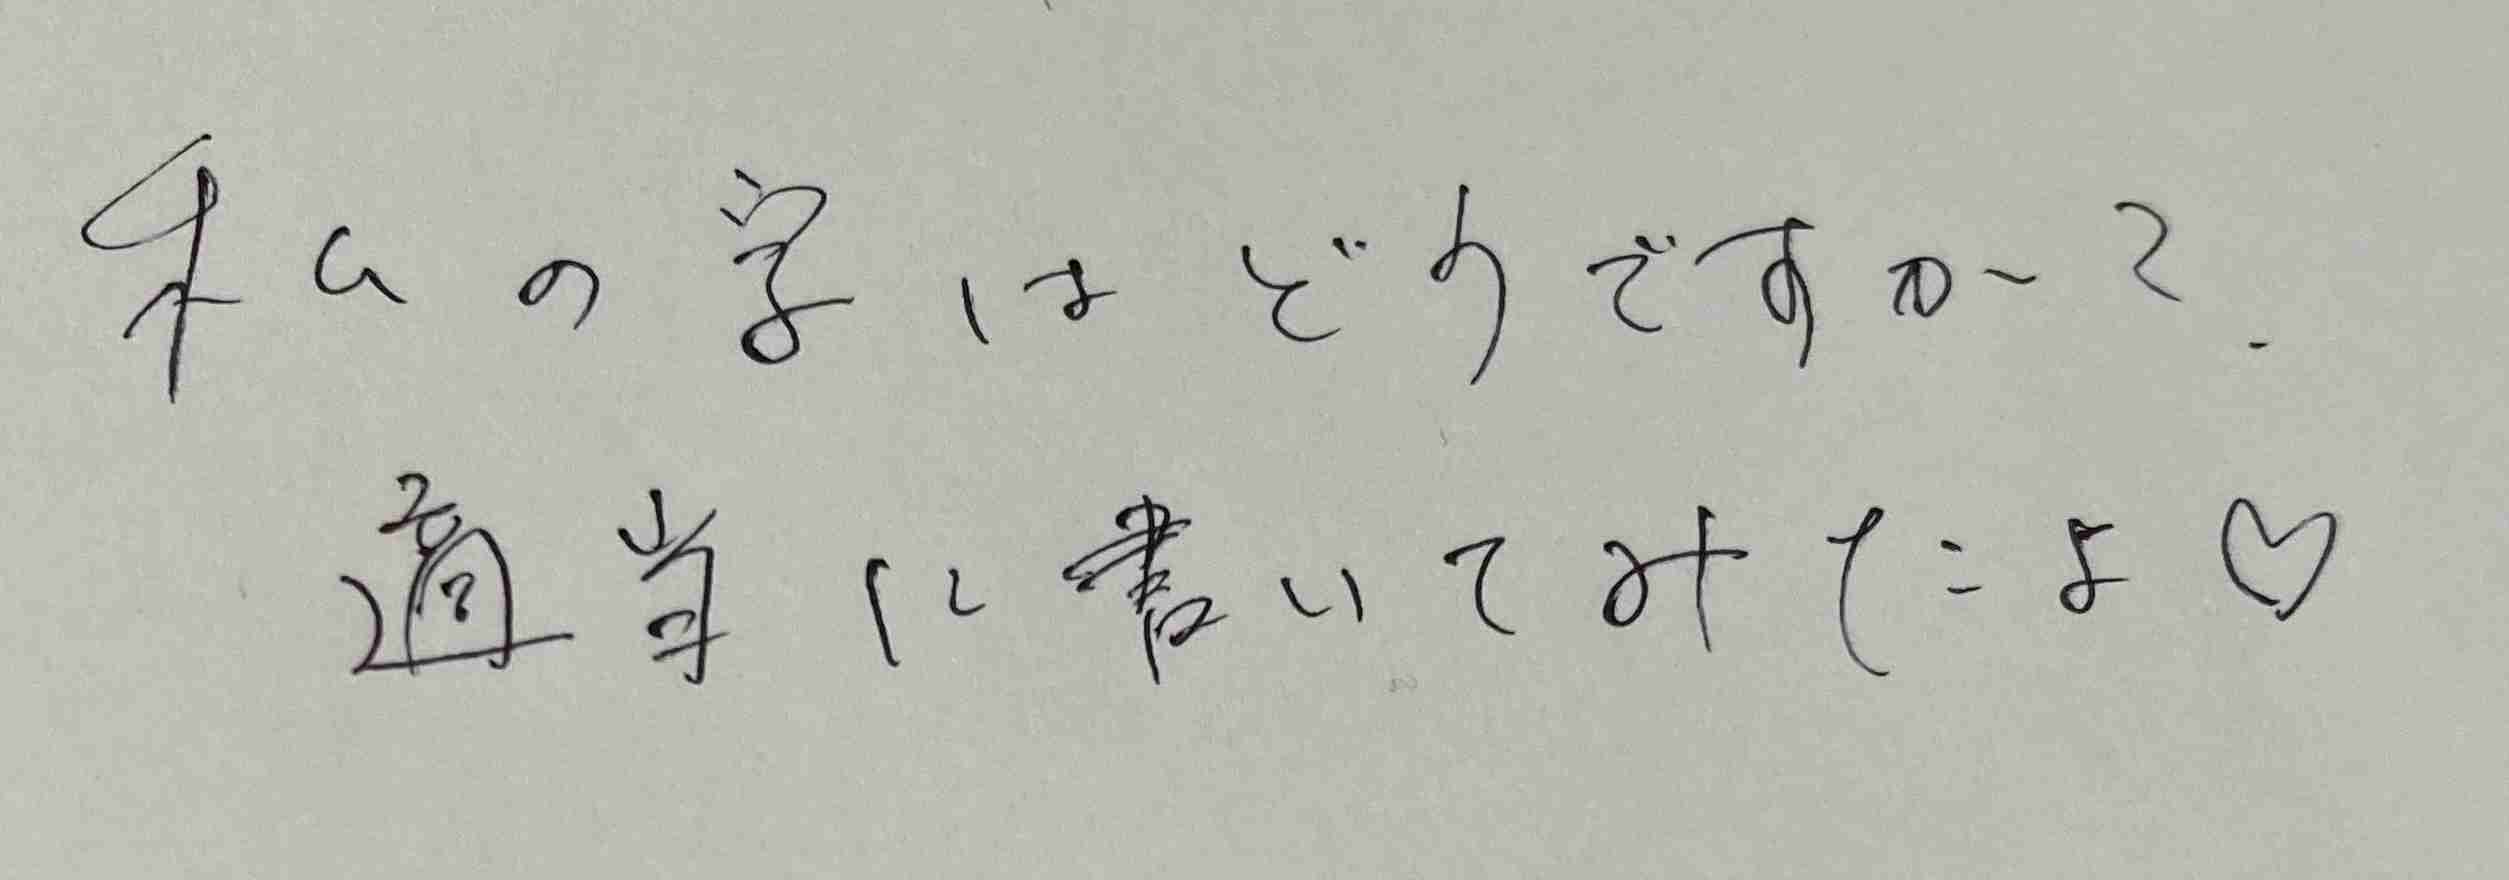 私の字はどうですか～？
適当に書いてみたよ♡